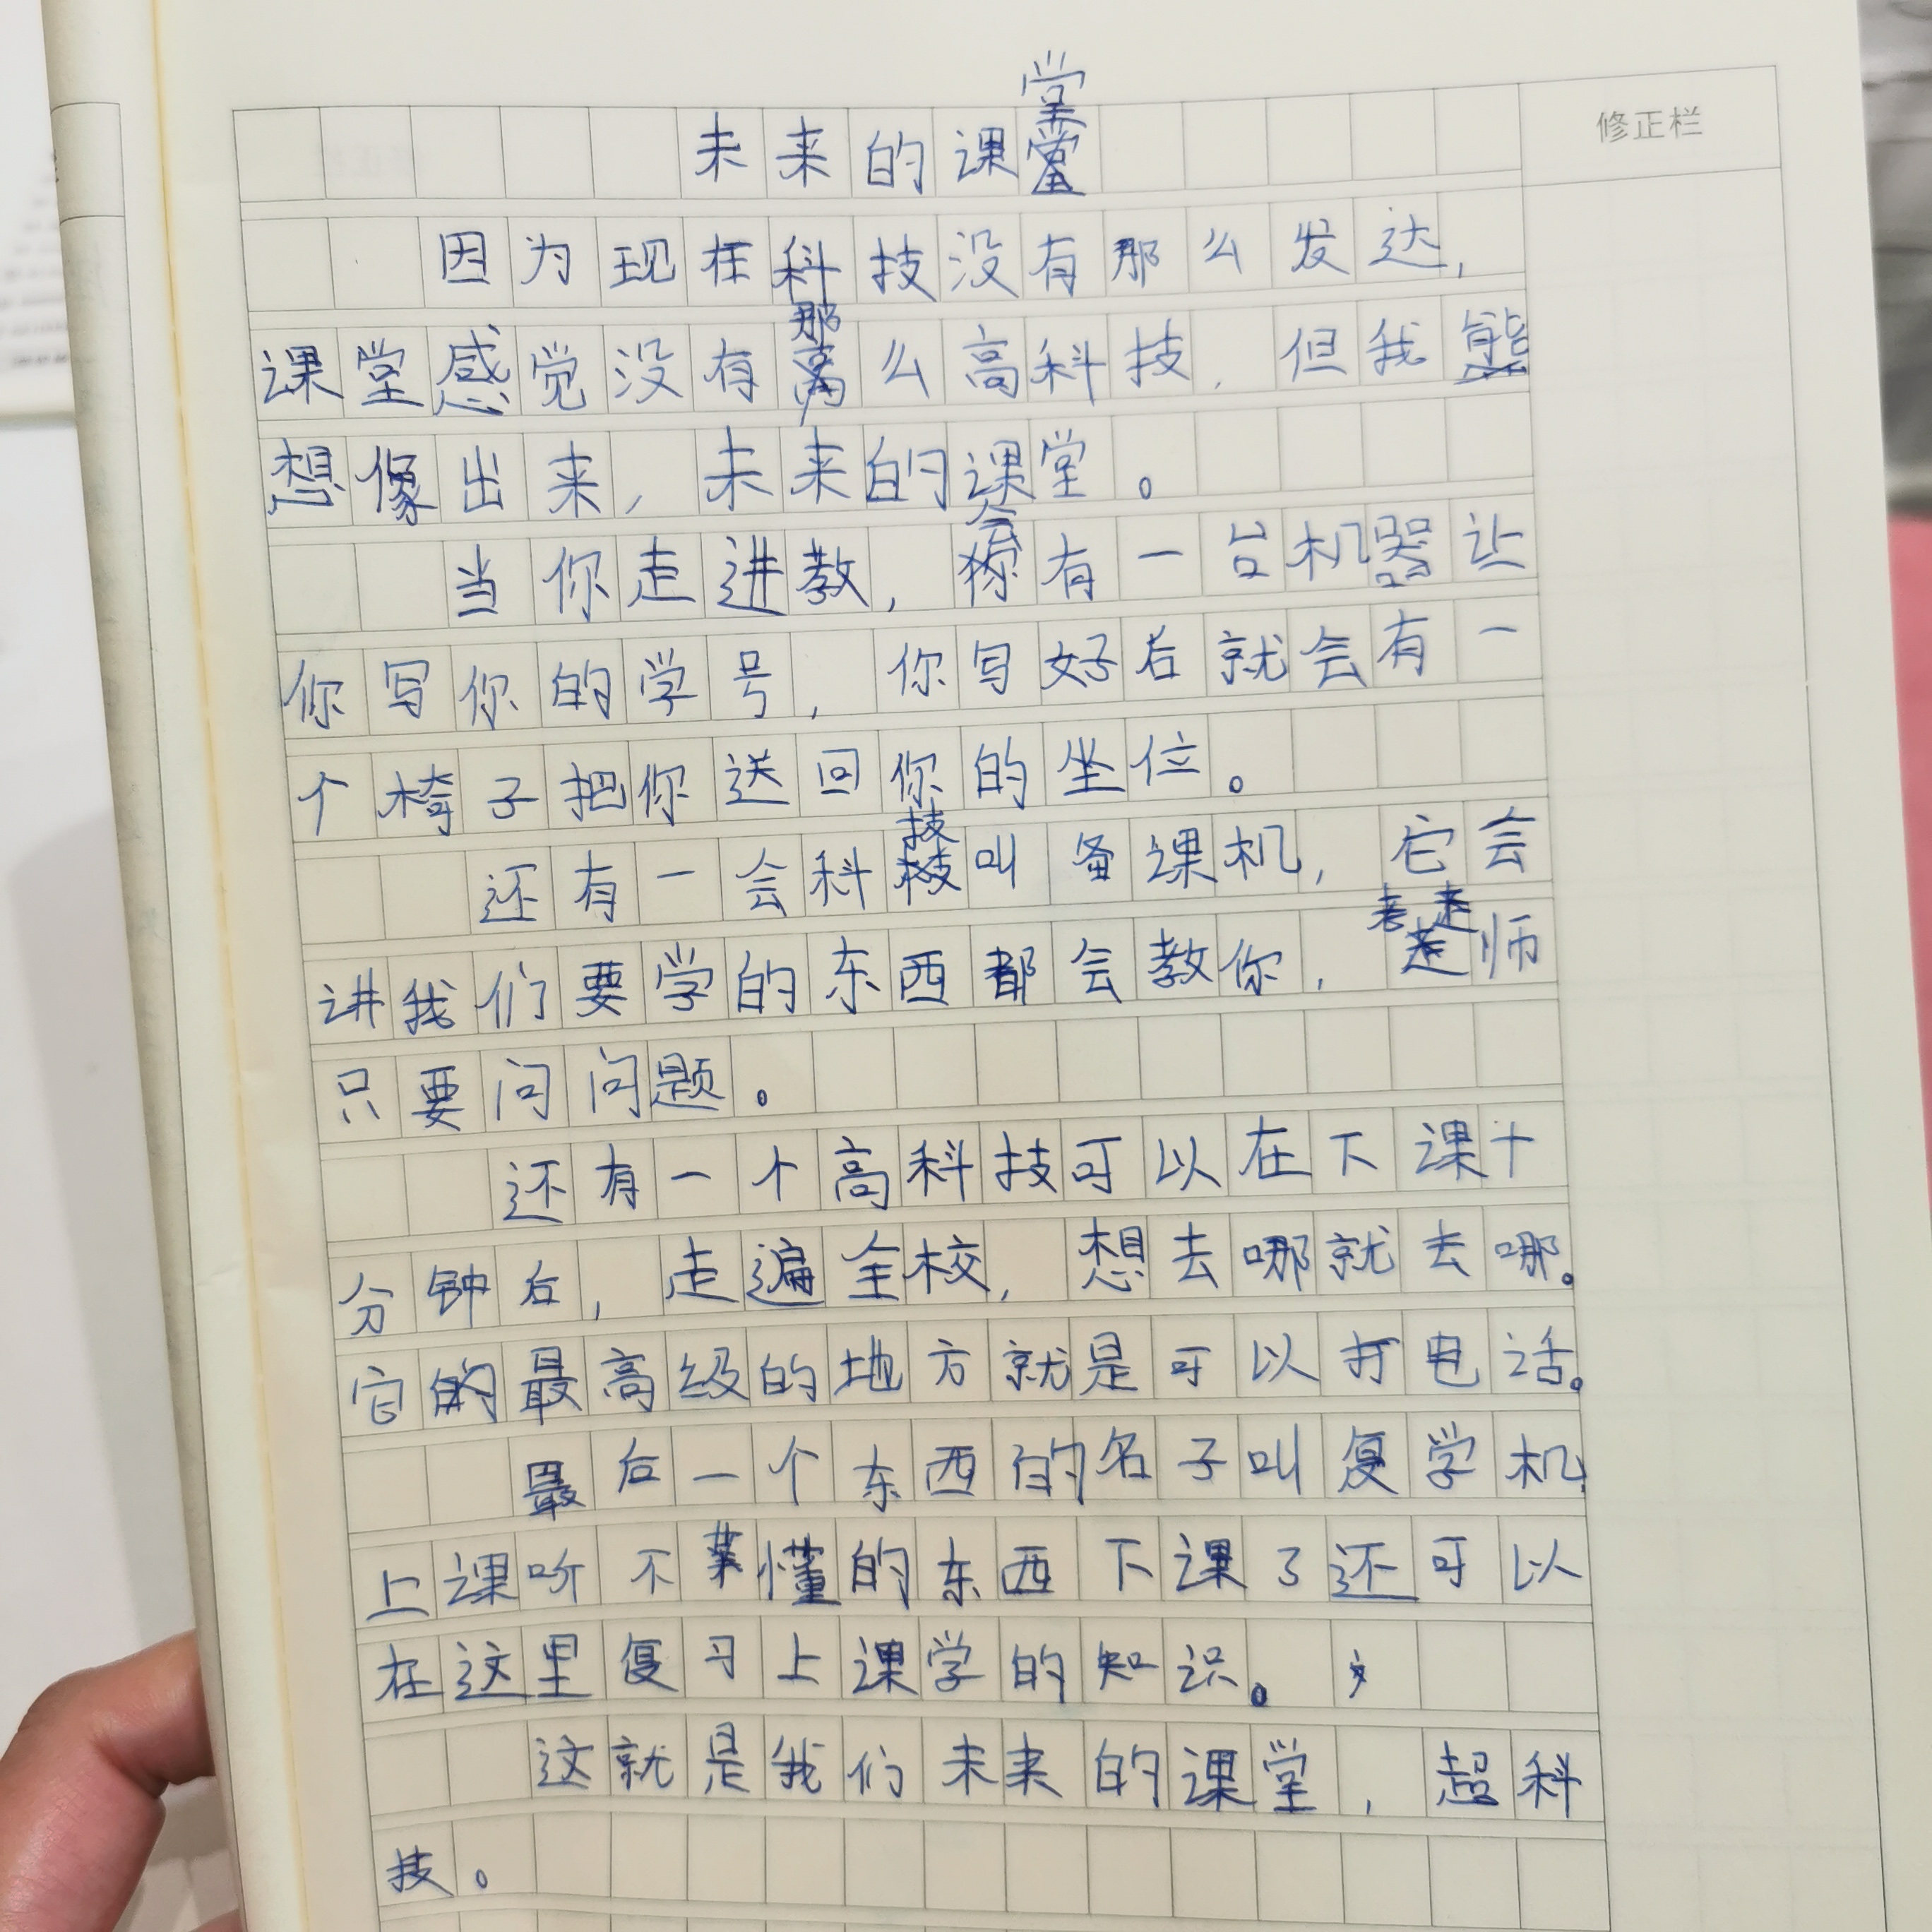 未来的课堂
修正栏
因为现在科技没有那么发达,
课堂感觉没有那么高科技,但我能
想像出来,未来的课堂。
当你走进教,会有一台机器让
你写你的学号,你写好后就会有一
个椅子把你送回你的坐位。
还有一会科技叫备课机,它会
讲我们要学的东西都会教你,老师
只要问问题。
还有一个高科技可以在下课十
分钟后,走遍全校,想去哪就去哪。
它的最高级的地方就是可以打电话。
最后一个东西的名子叫复学机,
上课听不懂的东西下课了还可以
在这里复习上课学的知识。
这就是我们未来的课堂,超科
技。